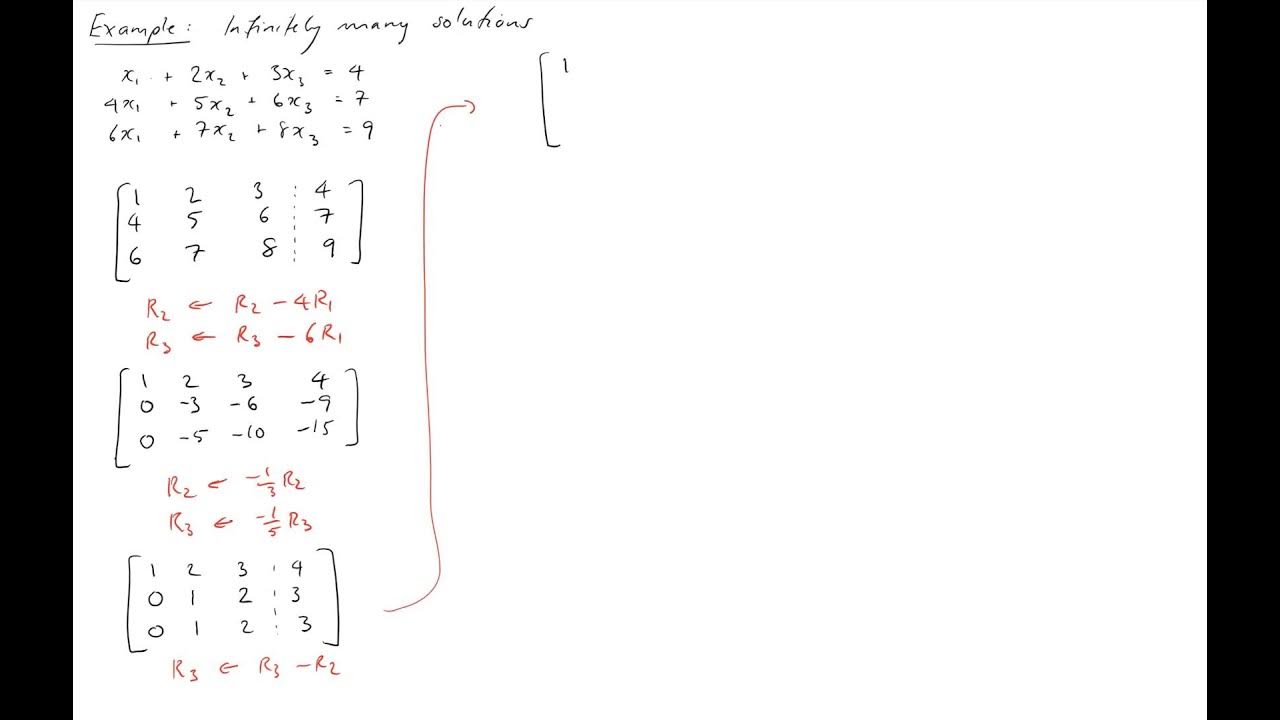 Example: Infinitely many solutions
x₁ + 2x₂ + 3x₃ = 4
4x₁ + 5x₂ + 6x₃ = 7
6x₁ + 7x₂ + 8x₃ = 9
1 2 3 4
4 5 6 7
6 7 8 9
R₂ ← R₂ - 4R₁
R₃ ← R₃ - 6R₁
1 2 3 4
0 -3 -6 -9
0 -5 -10 -15
R₂ ← -1/3 R₂
R₃ ← -1/5 R₃
1 2 3 4
0 1 2 3
0 1 2 3
R₃ ← R₃ - R₂
1